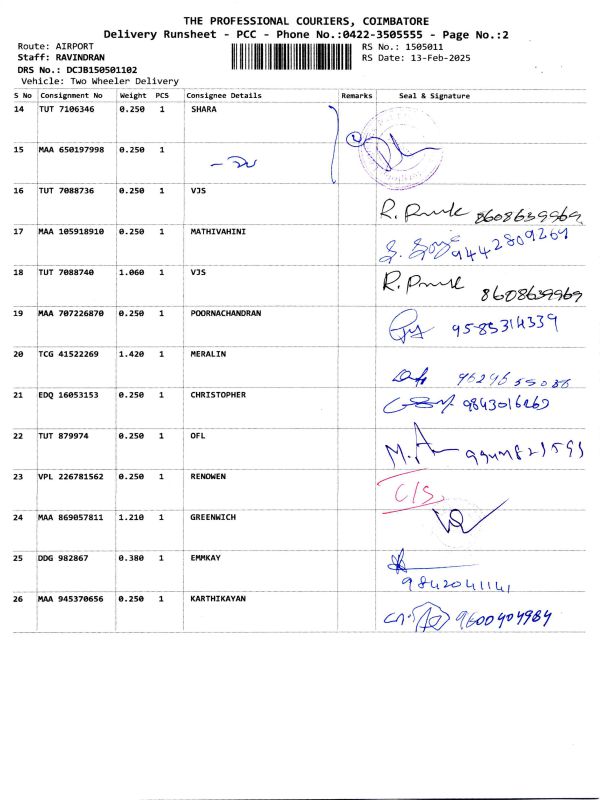 THE PROFESSIONAL COURIERS, COIMBATORE
Delivery Runsheet - PCC - Phone No.:0422-3505555 - Page No.:2
Route: AIRPORT RS No.: 1505011
Staff: RAVINDRAN RS Date: 13-Feb-2025
DRS No.: DCJB150501102
Vehicle: Two Wheeler Delivery
S No Consignment No Weight PCS Consignee Details Remarks Seal & Signature
14 TUT 7106346 0.250 1 SHARA
15 MAA 650197998 0.250 1
16 TUT 7088736 0.250 1 VJS
8608639969
17 MAA 105918910 0.250 1 MATHIVAHINI
9442809269
18 TUT 7088740 1.060 1 VJS
8608639969
19 MAA 707226870 0.250 1 POORNACHANDRAN
9585314339
20 TCG 41522269 1.420 1 MERALIN
21 EDQ 16053153 0.250 1 CHRISTOPHER
22 TUT 879974 0.250 1 OFL
23 VPL 226781562 0.250 1 RENOWEN
C/S
24 MAA 869057811 1.210 1 GREENWICH
25 DDG 982867 0.380 1 EMMKAY
9842041141
26 MAA 945370656 0.250 1 KARTHIKAYAN
9600404984